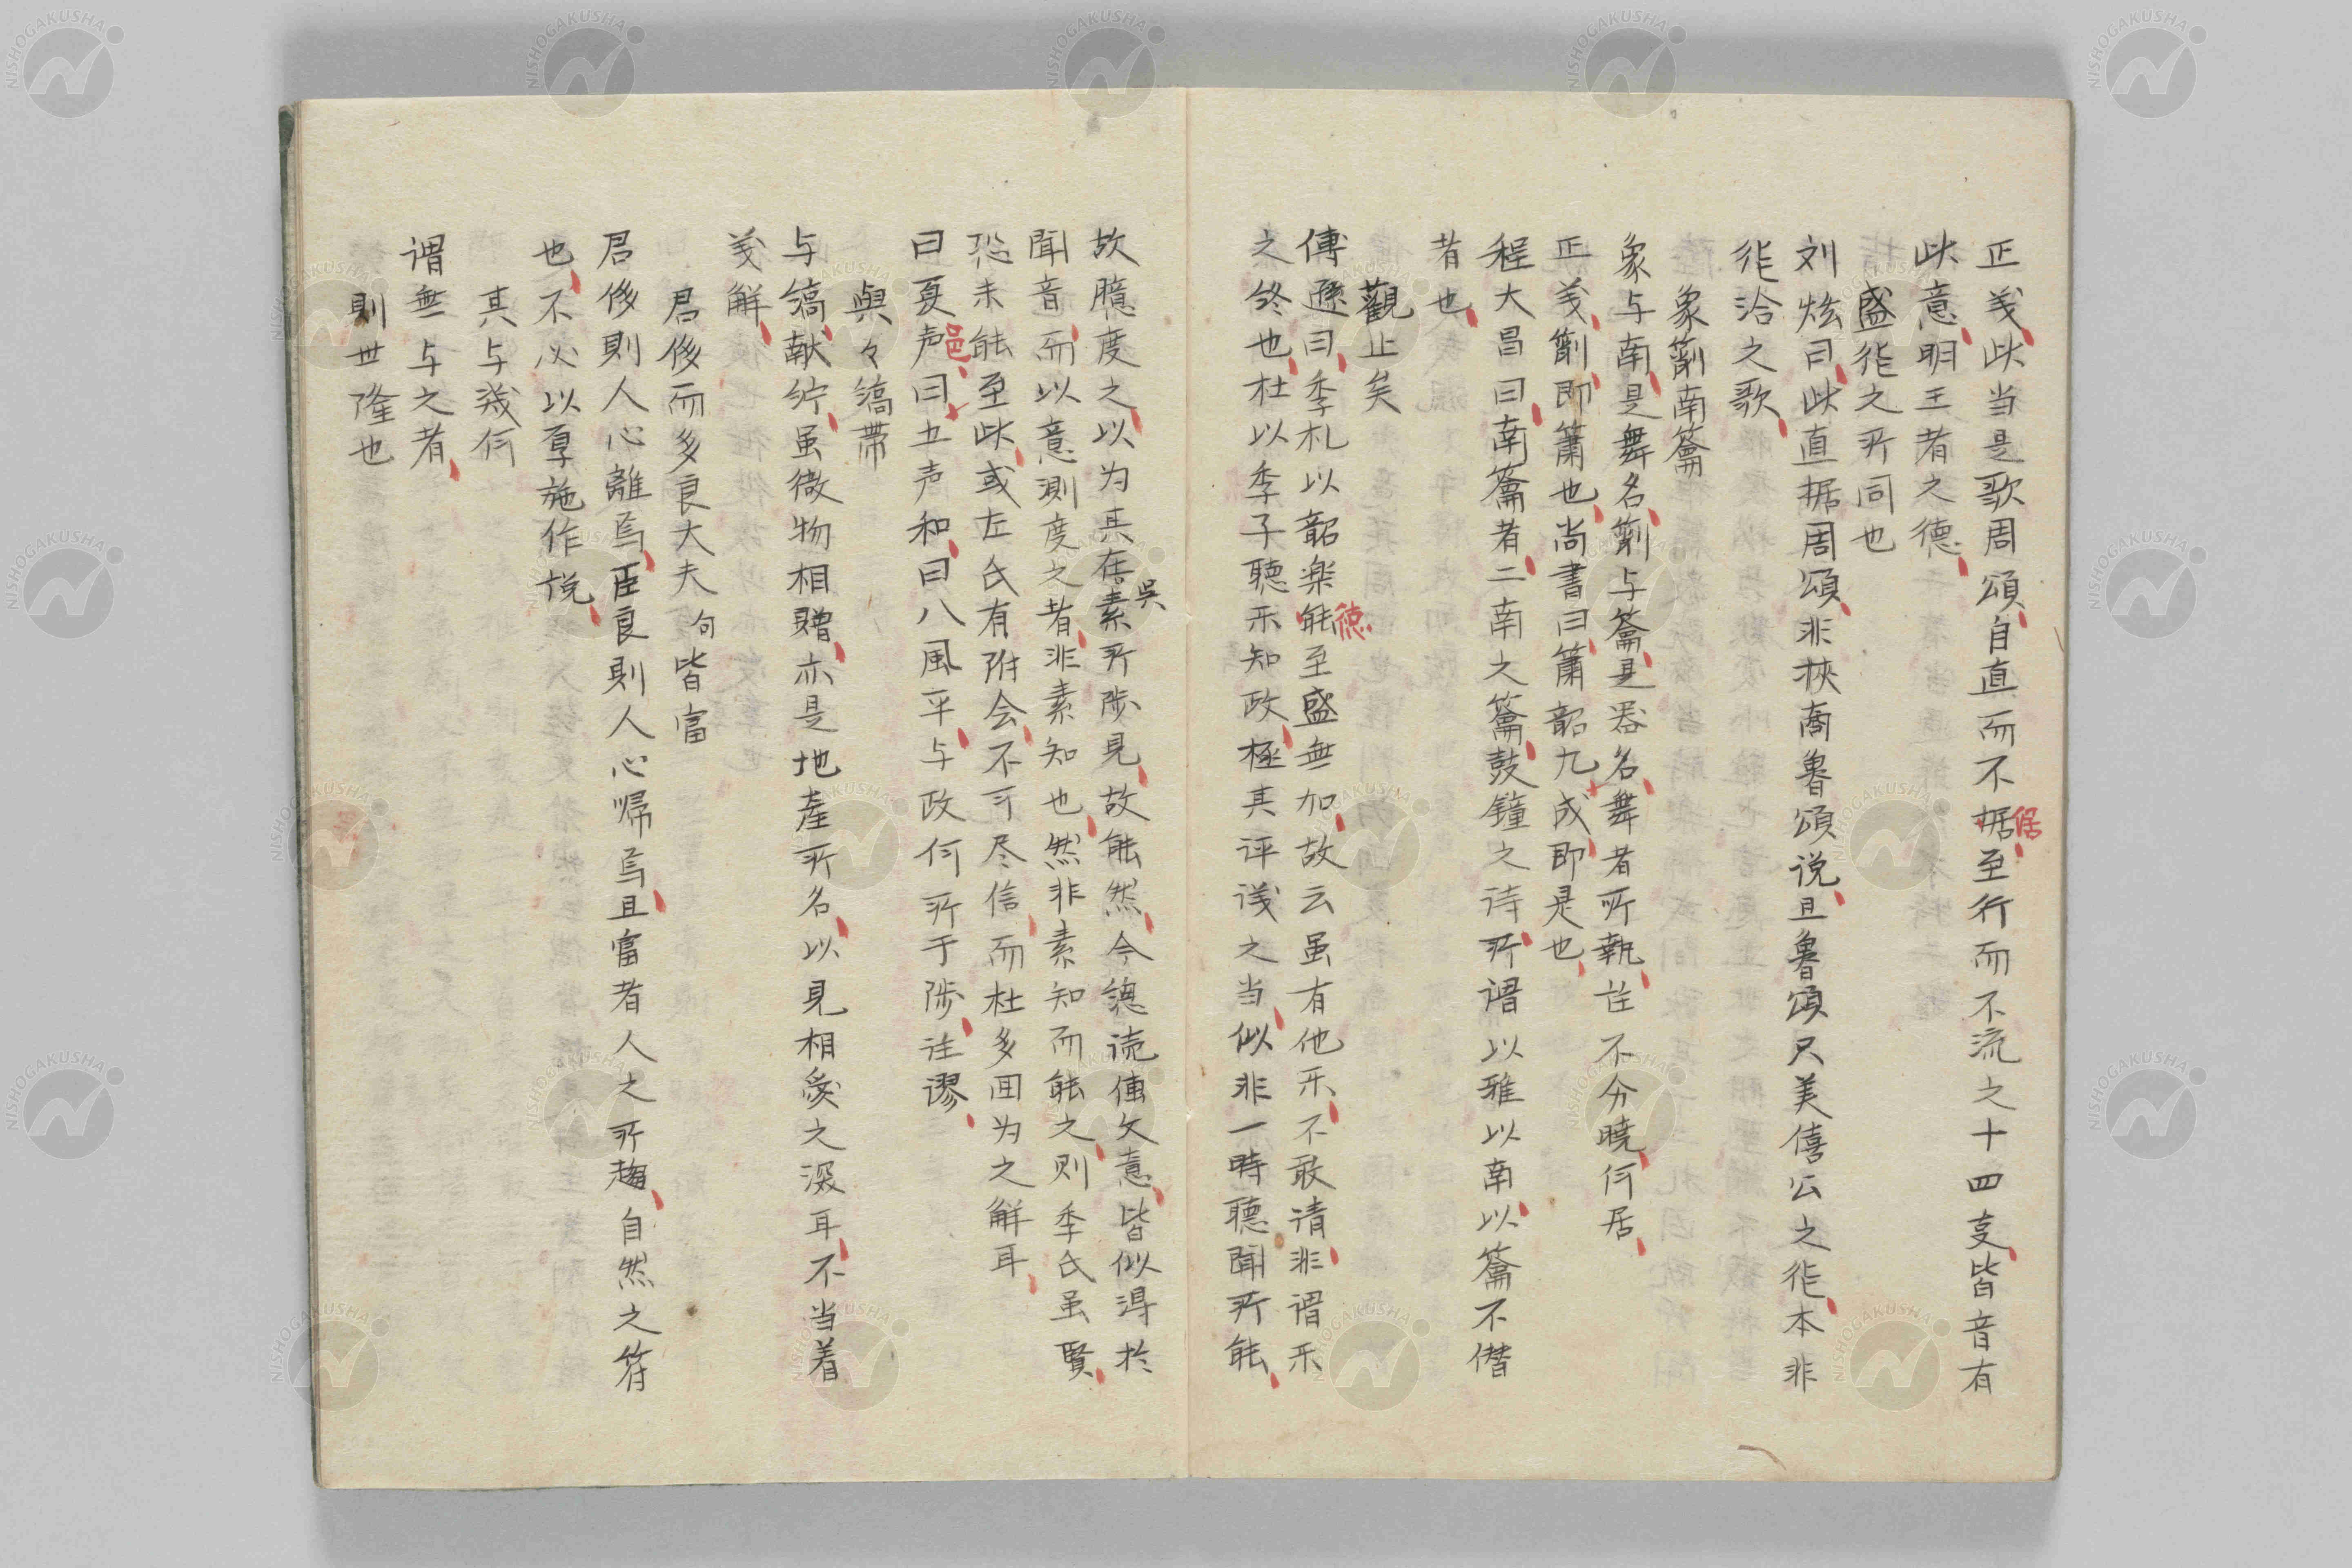 正义此当是歌周頌自直而不倨至行而不流之十四支皆音有
此意明王者之德
盛徳之所同也
刘炫曰此直据周頌非挾商魯頌说且魯頌只美僖公之徳本非
徳洽之歌
象箾南籥
象与南是舞名箾与籥是器名舞者所執注不分曉何居
正义箾即簫也尚書曰簫韶九成即是也
程大昌曰南籥者二南之籥鼓鐘之诗所谓以雅以南以籥不僭
者也
觀止矣
傅遜曰季札以韶楽徳至盛無加故云虽有他乐不敢请非谓乐
之终也杜以季子聴乐知政極其评议之当似非一時聴聞所能
故臆度之以为其在吳素所陟見故能然今總读傳文意皆似淂於
聞音而以意測度之者非素知也然非素知而能之则季氏虽賢
恐未能至此或左氏有附会不可尽信而杜多囬为之解耳
曰夏声邑曰五声和曰八風平与政何所于陟注謬
與々縞帯
与縞献紵虽微物相贈亦是地産所名以見相爱之深耳不当着
义解
君侈而多良大夫句皆富
君侈則人心離焉臣良則人心帰焉且富者人之所趨自然之符
也不必以厚施作说
其与幾何
谓無与之者
則世隆也
NISHOGAKUSHA